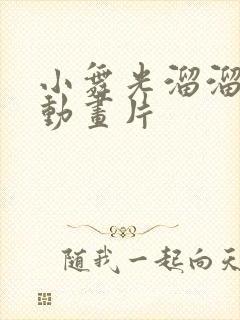 小舞光溜溜
動畫片
随我一起向天